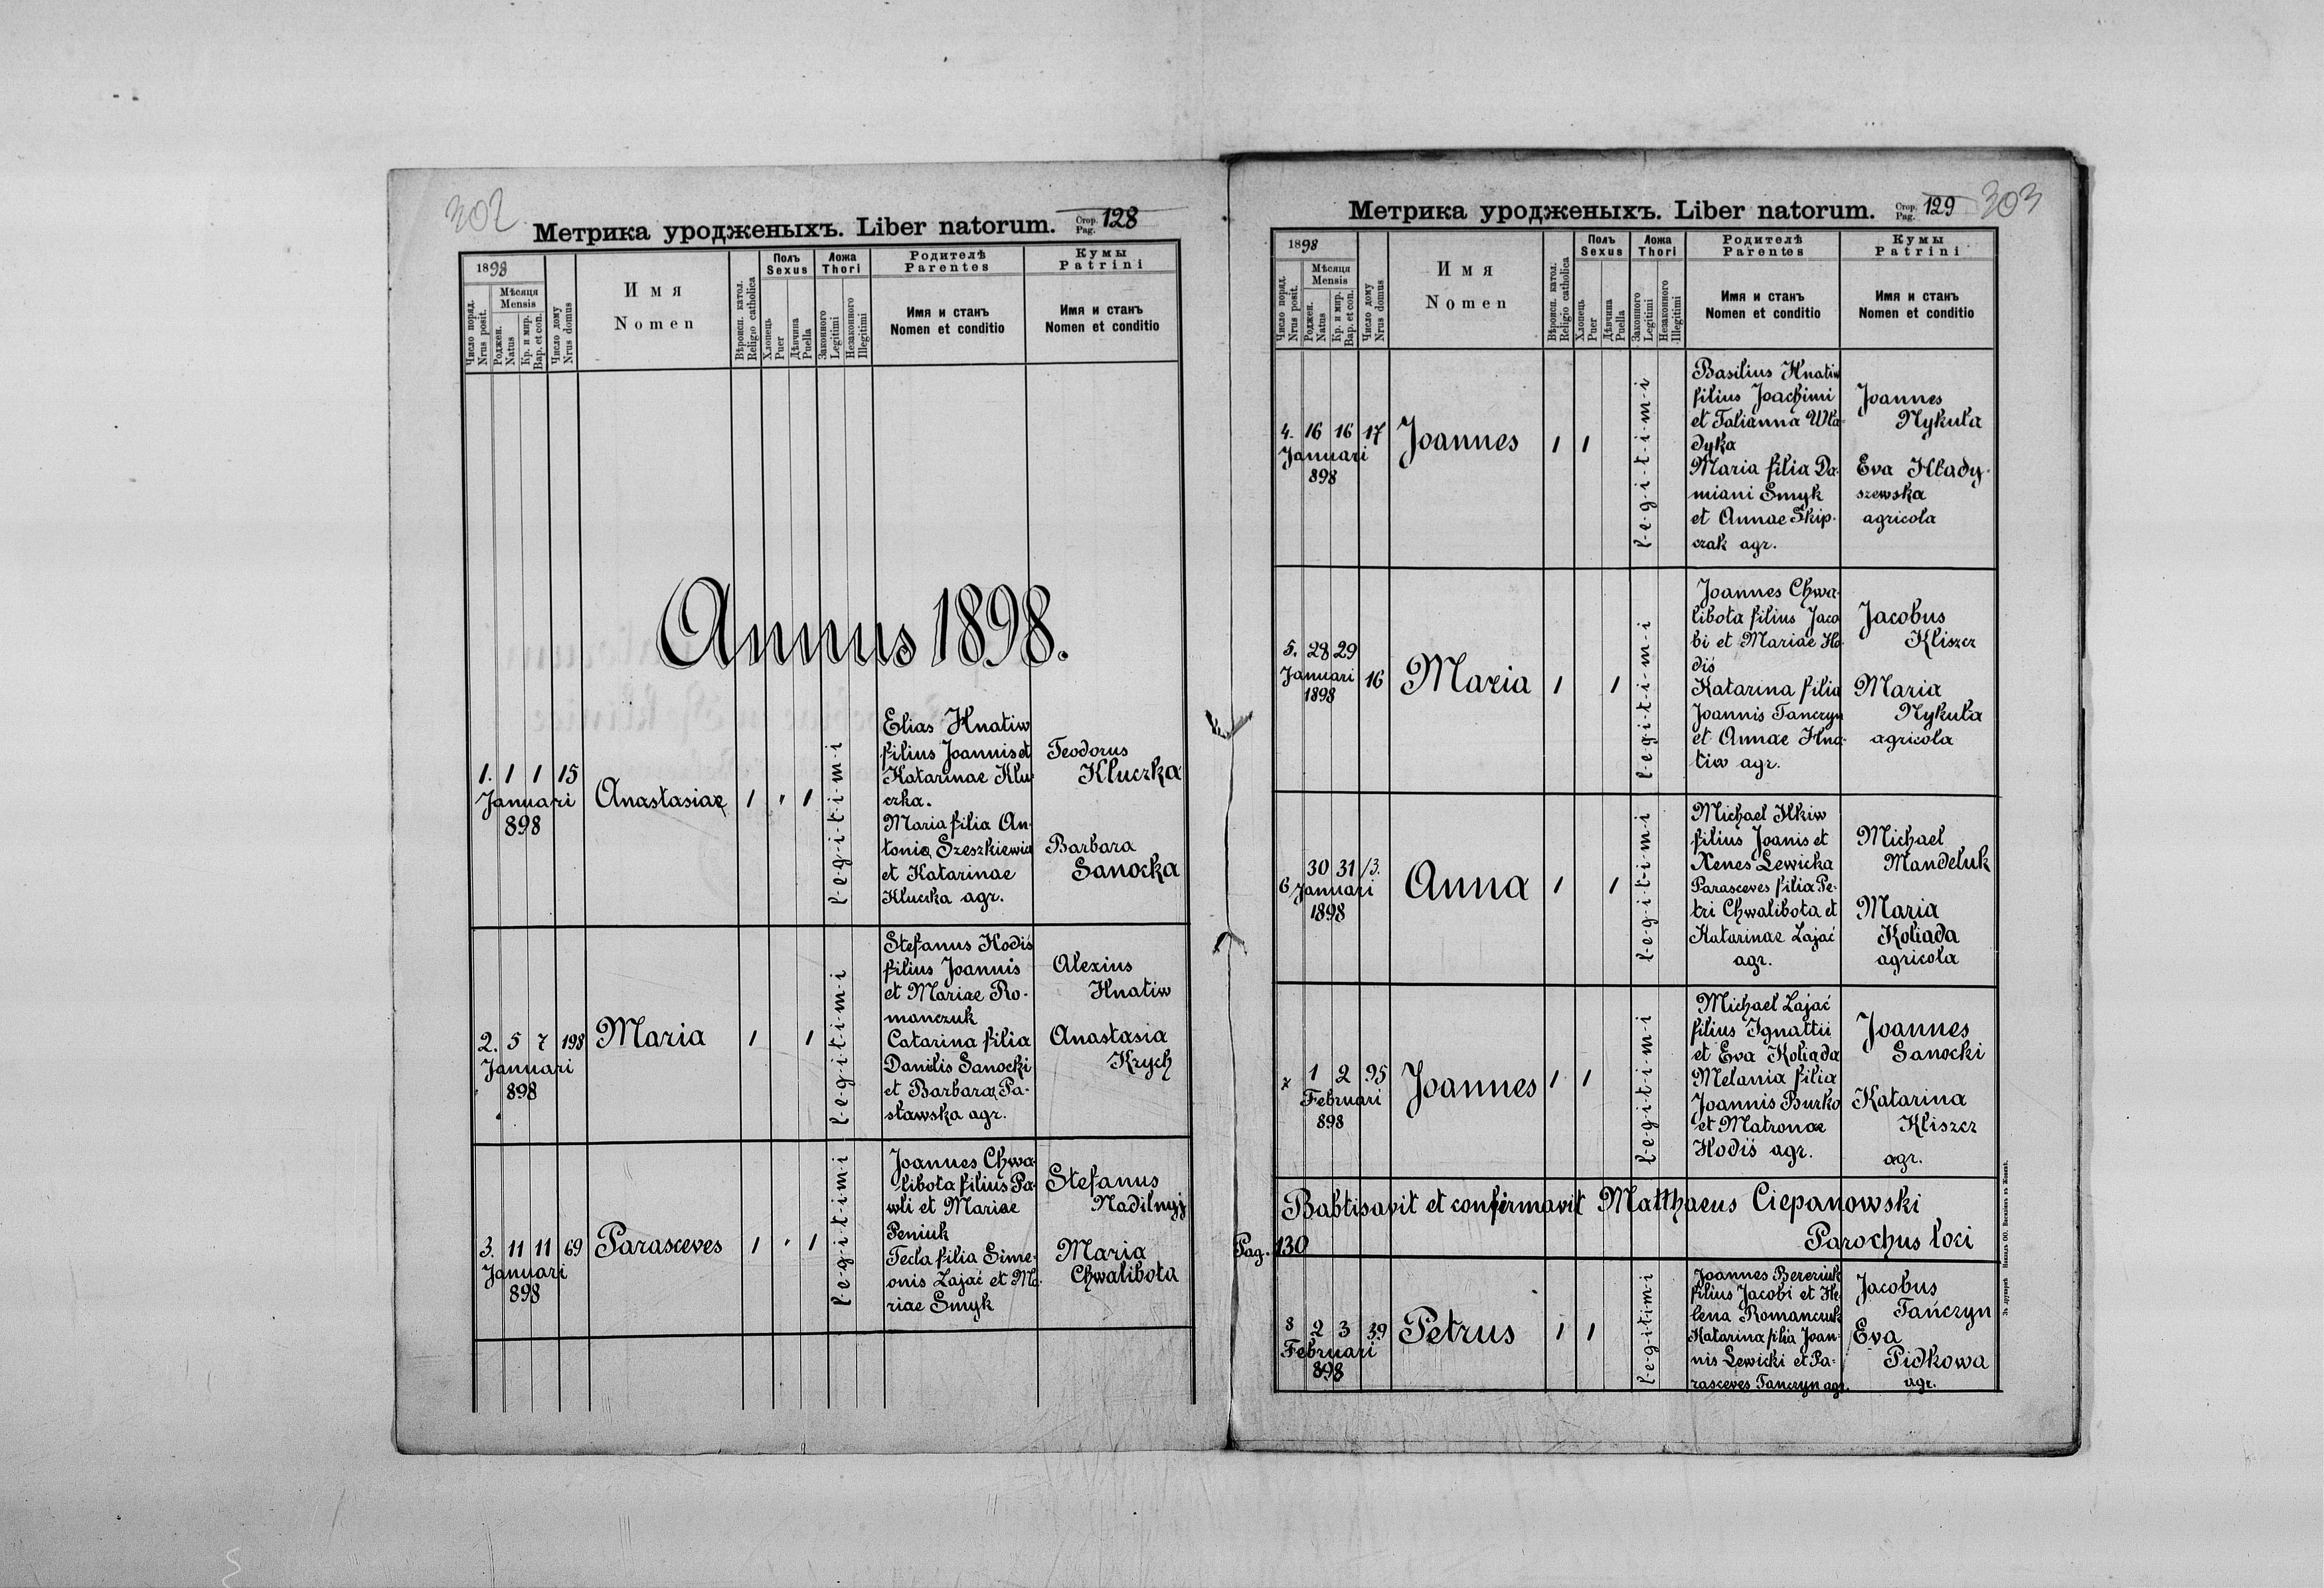 302
Метрика уродженыхъ. Liber natorum. Стор. Pag. 128
1898
Число поряд. Nrus posit.
Мѣсяця Mensis
Роджен. Natus
Кр. и мир. Bap. et con.
Число дому Nrus domus
Имя
Nomen
Вѣроисп. катол. Religio catholica
Полъ
Sexus
Хлопець Puer
Дѣвчина Puella
Ложа
Thori
Законного Legitimi
Незаконного Illegitimi
Родителѣ
Parentes
Имя и станъ
Nomen et conditio
Кумы
Patrini
Имя и станъ
Nomen et conditio
Annus 1898.
1. 1 1 15
Januari
898
Anastasiae
1 ' 1
l-e-g-i-t-i-m-i
Elias Hnatiw
filius Joannis et
Katarinae Klu
czka.
Maria filia An-
tonie Szeszkiewicz
et Katarinae
Kluczka agr.
Teodorus
Kluczka
Barbara
Sanocka
2. 5 7 198
Januari
898
Maria
1 1
l-e-g-i-t-i-m-i
Stefanus Hodiś
filius Joannis
et Mariae Ro-
manczuk
Catarina filia
Danilis Sanocki
et Barbarae Pa-
sławska agr.
Alexius
Hnatiw
Anastasia
Krych
3. 11 11 69
Januari
898
Parasceves
1 ' 1
l-e-g-i-t-i-m-i
Joannes Chwa-
libota filius Pa-
wli et Mariae
Peniuk
Tecla filia Sime-
onis Zajać et Ma-
riae Smyk
Stefanus
Nadilnyj
Maria
Chwalibota
Метрика уродженыхъ. Liber natorum. Стор. Pag. 129
303
1898
Число поряд. Nrus posit.
Мѣсяця Mensis
Роджен. Natus
Кр. и мир. Bap. et con.
Число дому Nrus domus
Имя
Nomen
Вѣроисп. катол. Religio catholica
Полъ
Sexus
Хлопець Puer
Дѣвчина Puella
Ложа
Thori
Законного Legitimi
Незаконного Illegitimi
Родителѣ
Parentes
Имя и станъ
Nomen et conditio
Кумы
Patrini
Имя и станъ
Nomen et conditio
4. 16 16 17
Januari
898
Joannes
1 1
l-e-g-i-t-i-m-i
Basilius Hnatiw
filius Joachimi
et Tatianna Wła-
dyka
Maria filia Da-
miani Smyk
et Annae Skip-
czak agr.
Joannes
Mykuła
Eva Hłady-
szewska
agricola
5. 28 29
Januari 16
1898
Maria
1 1
l-e-g-i-t-i-m-i
Joannes Chwa-
libota filius Jaco
bi et Mariae Ho-
diś
Katarina filia
Joannis Tanczyn
et Annae Hna-
tiw agr.
Jacobus
Kliszcz
Maria
Mykuła
agricola
30 31 13.
6 Januari
1898
Anna
1 1
l-e-g-i-t-i-m-i
Michael Ilkiw
filius Joanis et
Xenes Lewicka
Parasceves filia Pe-
tri Chwalibota et
Katarinae Zajać
agr.
Michael
Mandeluk
Maria
Koliada
agricola
7 1 2 95
Februari
898
Joannes
1 1
l-e-g-i-t-i-m-i
Michael Zajać
filius Ignattii
et Eva Koliada
Melania filia
Joannis Burko
et Matronae
Hodiś agr.
Joannes
Sanocki
Katarina
Kliszcz
agr.
Babtisavit et confirmavit Matthaeus Ciepanowski
Parochus loci
Pag. 130
8 2 3 39
Februari
898
Petrus
1 1
l-e-g-i-t-i-m-i
Joannes Bereziuk
filius Jacobi et He-
lena Romanczuk
Katarina filia Joan-
nis Lewicki et Pa-
rasceves Tanczyn agr.
Jacobus
Tańczyn
Eva
Pidkowa
agr.